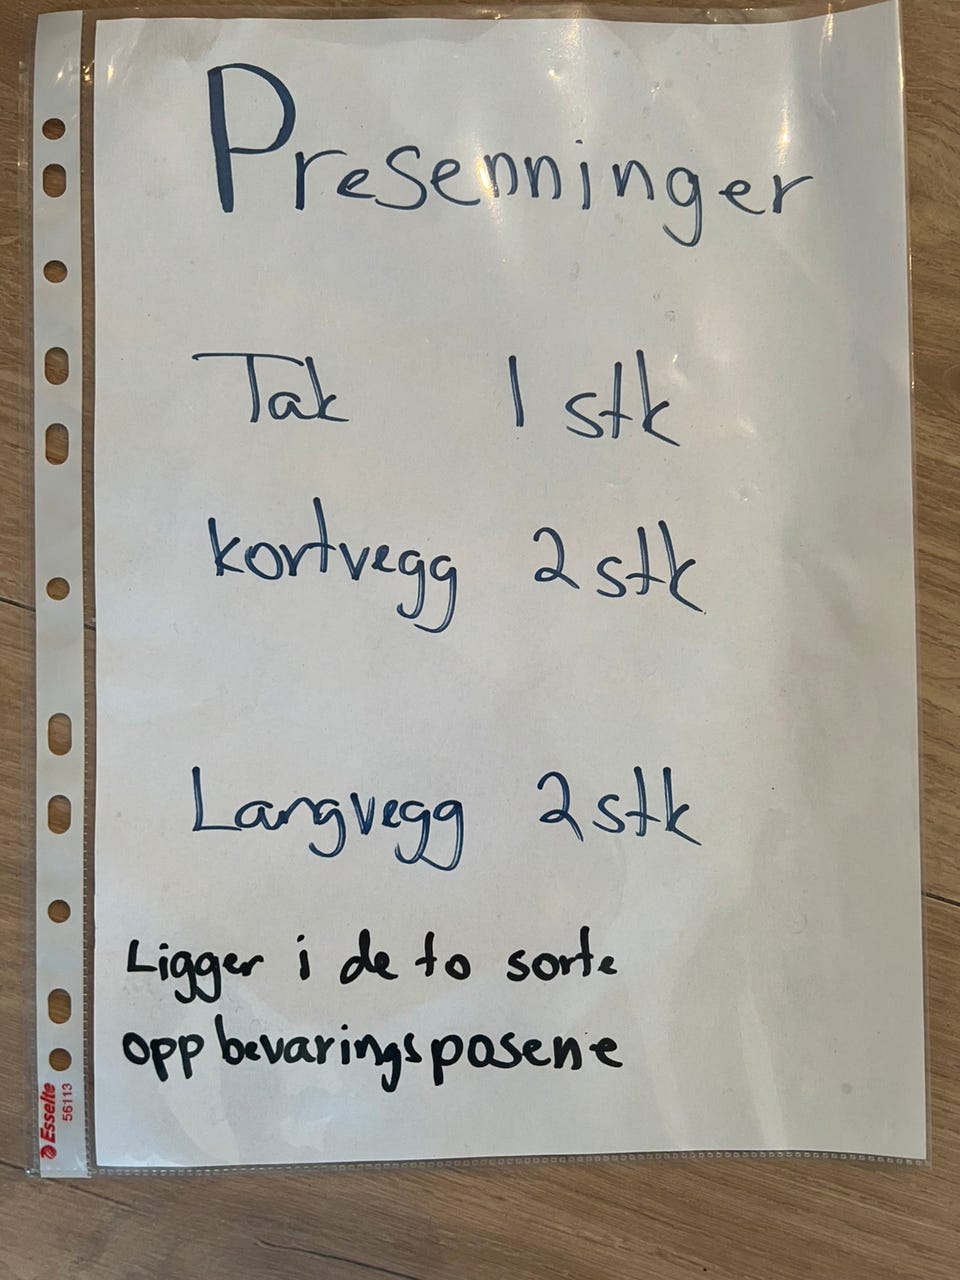 Presenninger
Tak 1 stk
kortvegg 2 stk
Langvegg 2 stk
Ligger i de to sorte
oppbevaringsposene
Esselte
56113